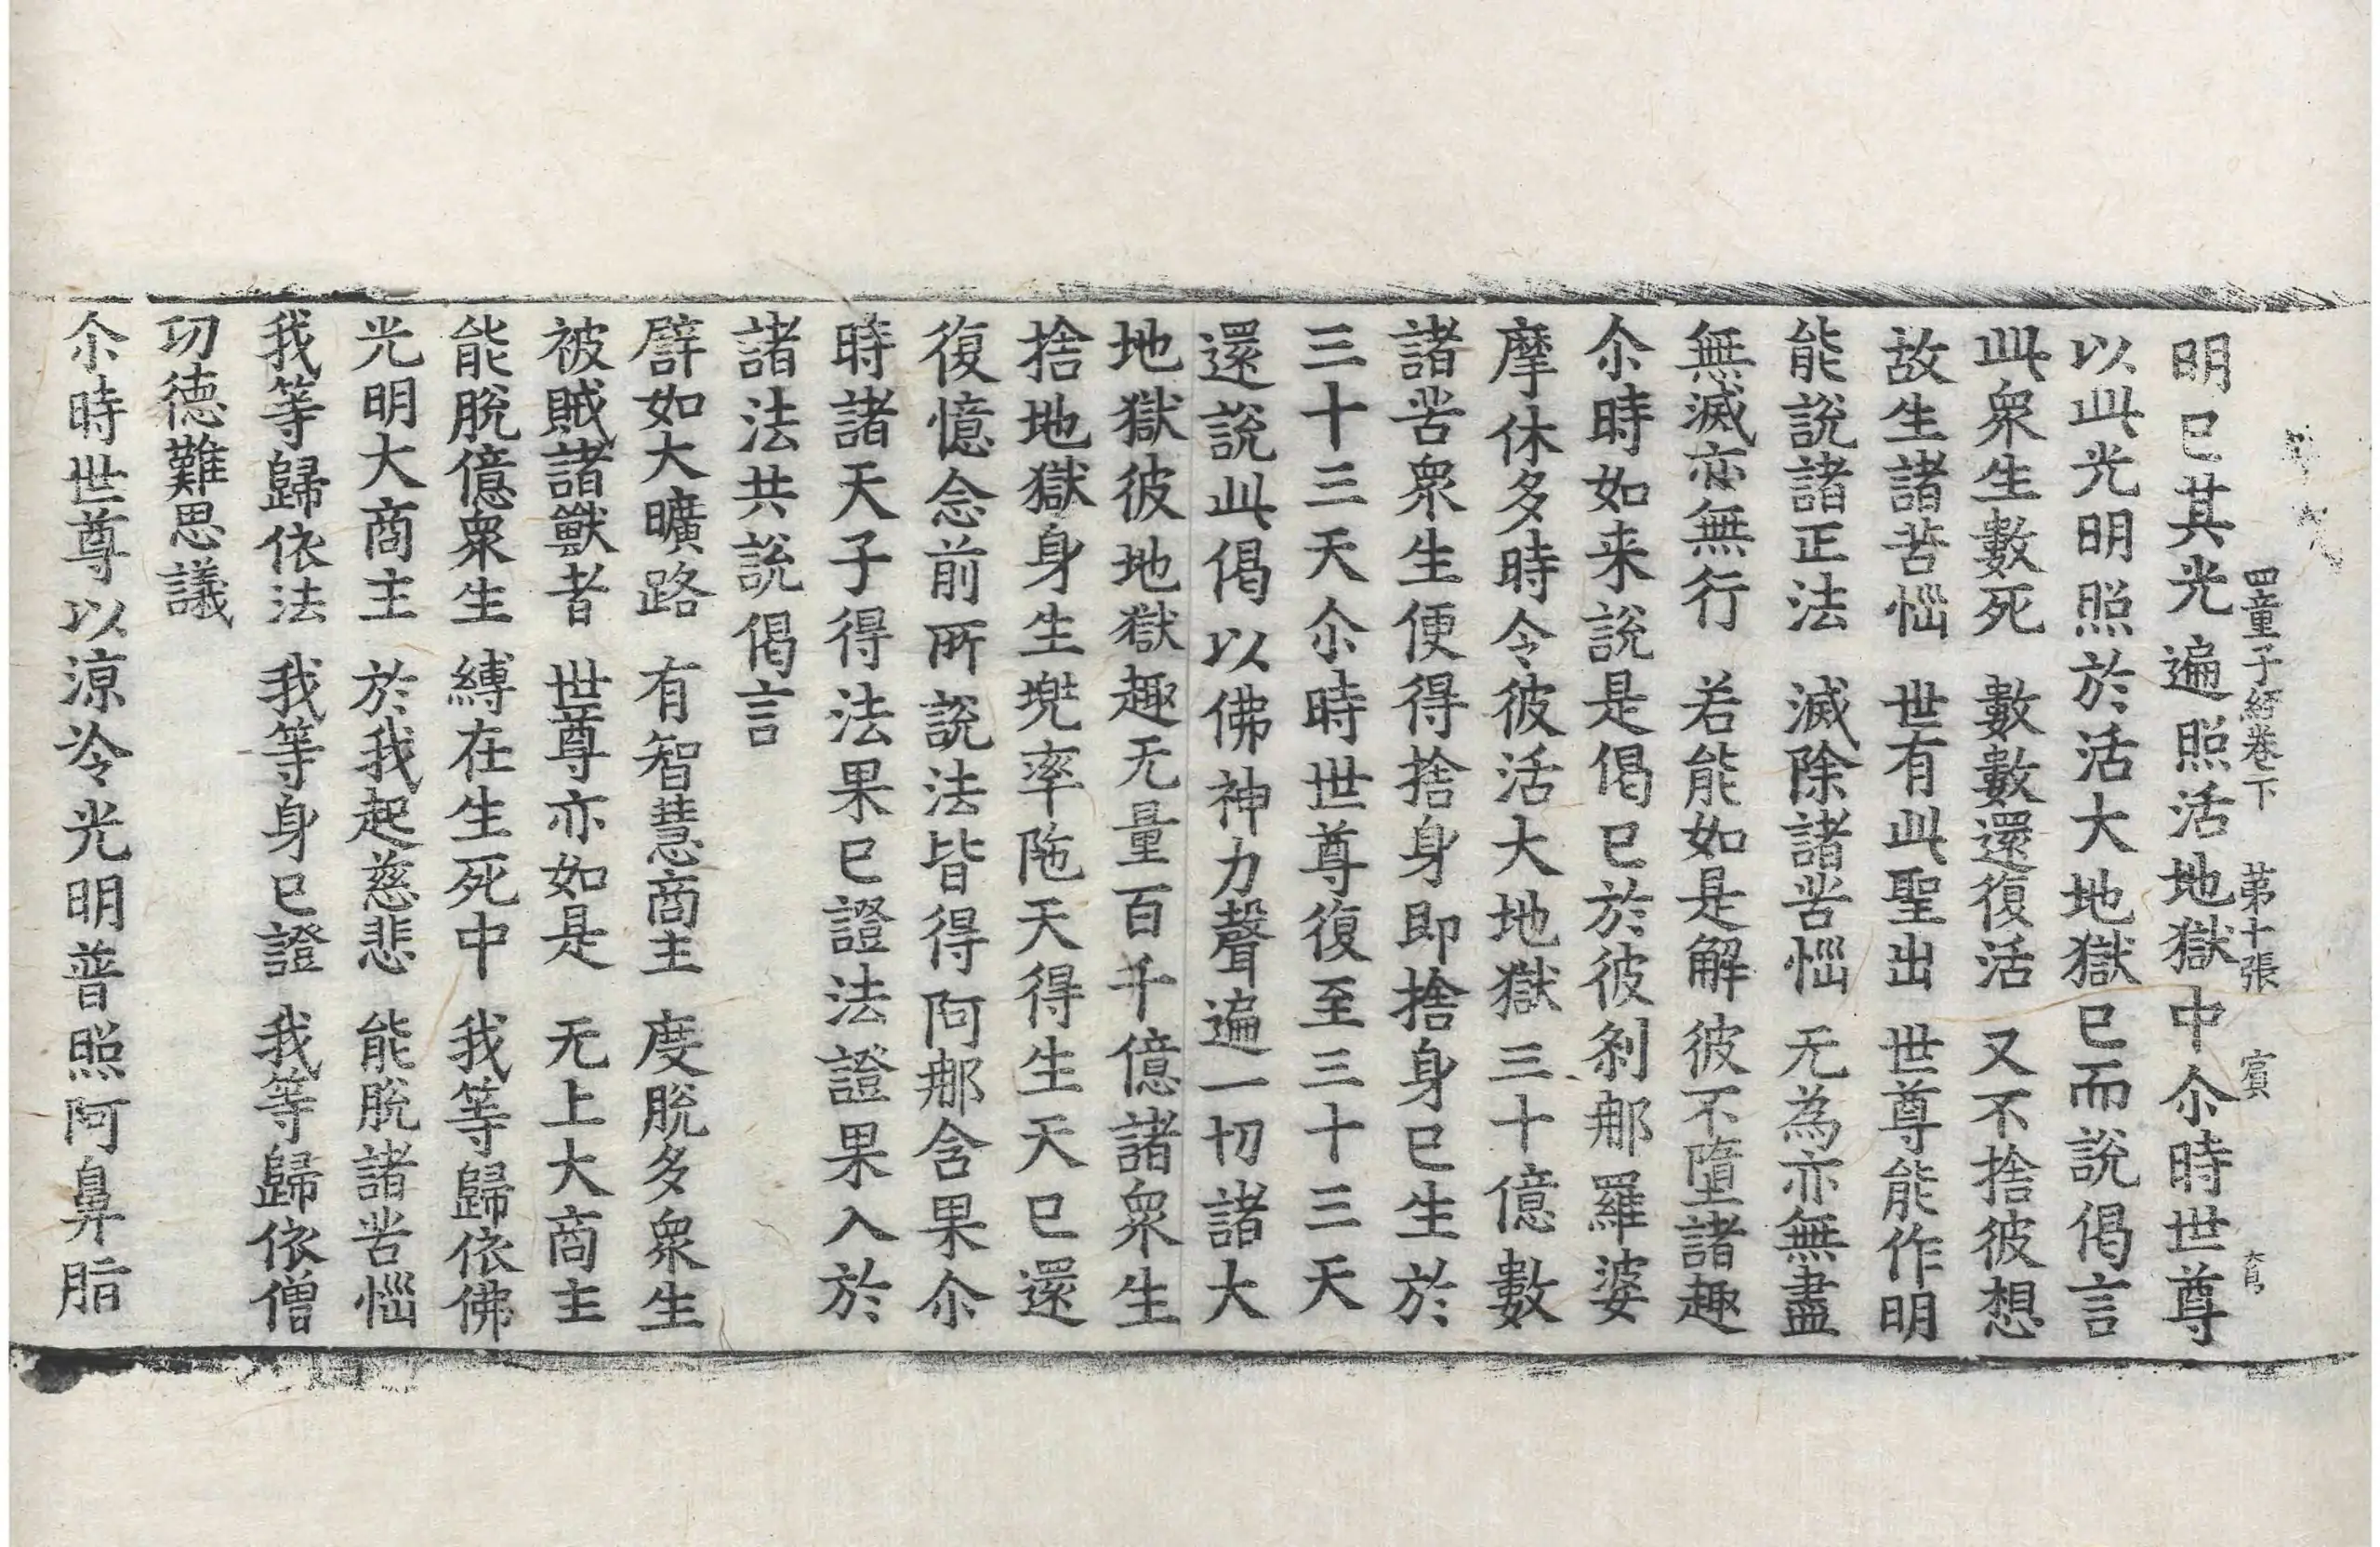 四童子經卷下　第十張　賓
明已其光遍照活地獄中尒時世尊
以此光明照於活大地獄已而說偈言
此衆生數死　數數還復活　又不捨彼想
故生諸苦惱　世有此聖出　世尊能作明
能說諸正法　滅除諸苦惱　无為亦無盡
無滅亦無行　若能如是解　彼不墮諸趣
尒時如来說是偈已於彼刹那羅婆
摩休多時令彼活大地獄三十億數
諸苦衆生便得捨身即捨身已生於
三十三天尒時世尊復至三十三天
還說此偈以佛神力聲遍一切諸大
地獄彼地獄趣无量百千億諸衆生
捨地獄身生兠率陁天得生天已還
復憶念前所說法皆得阿那含果尒
時諸天子得法果已證法證果入於
諸法共說偈言
譬如大曠路　有智慧商主　度脫多衆生
被賊諸獸者　世尊亦如是　无上大商主
能脫億衆生　縛在生死中　我等歸依佛
光明大商主　於我起慈悲　能脫諸苦惱
我等歸依法　我等身已證　我等歸依僧
功德難思議
尒時世尊以涼冷光明普照阿鼻脂